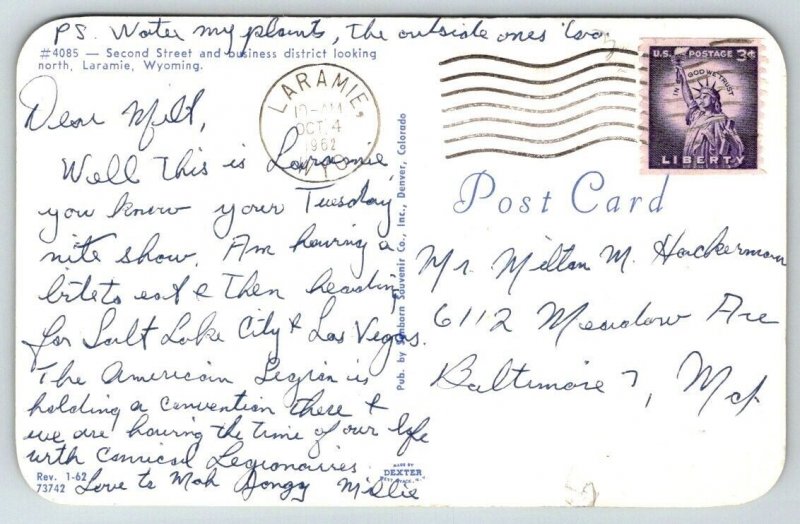 PS. Water my plants, The outside ones too
#4085 — Second Street and business district looking
north, Laramie, Wyoming.
LARAMIE,
10-AM
OCT 4
1962
WYO
U.S. POSTAGE 3¢
IN GOD WE TRUST
LIBERTY
Dear Milt,
Well This is Laramie,
you know your Tuesday
nite show. Am having a
bite to eat & then heading
for Salt Lake City & Las Vegas.
The American Legion is
holding a convention there &
we are having the time of our life
with comical Legionaires
Love to Mah
Rev. 1-62
73742
Pub. by Sanborn Souvenir Co., Inc., Denver, Colorado
MADE BY
DEXTER
WEST NYACK, N.Y.
Post Card
Mr. Milton M. Hackerman
6112 Meadow Ave
Baltimore 7, Md